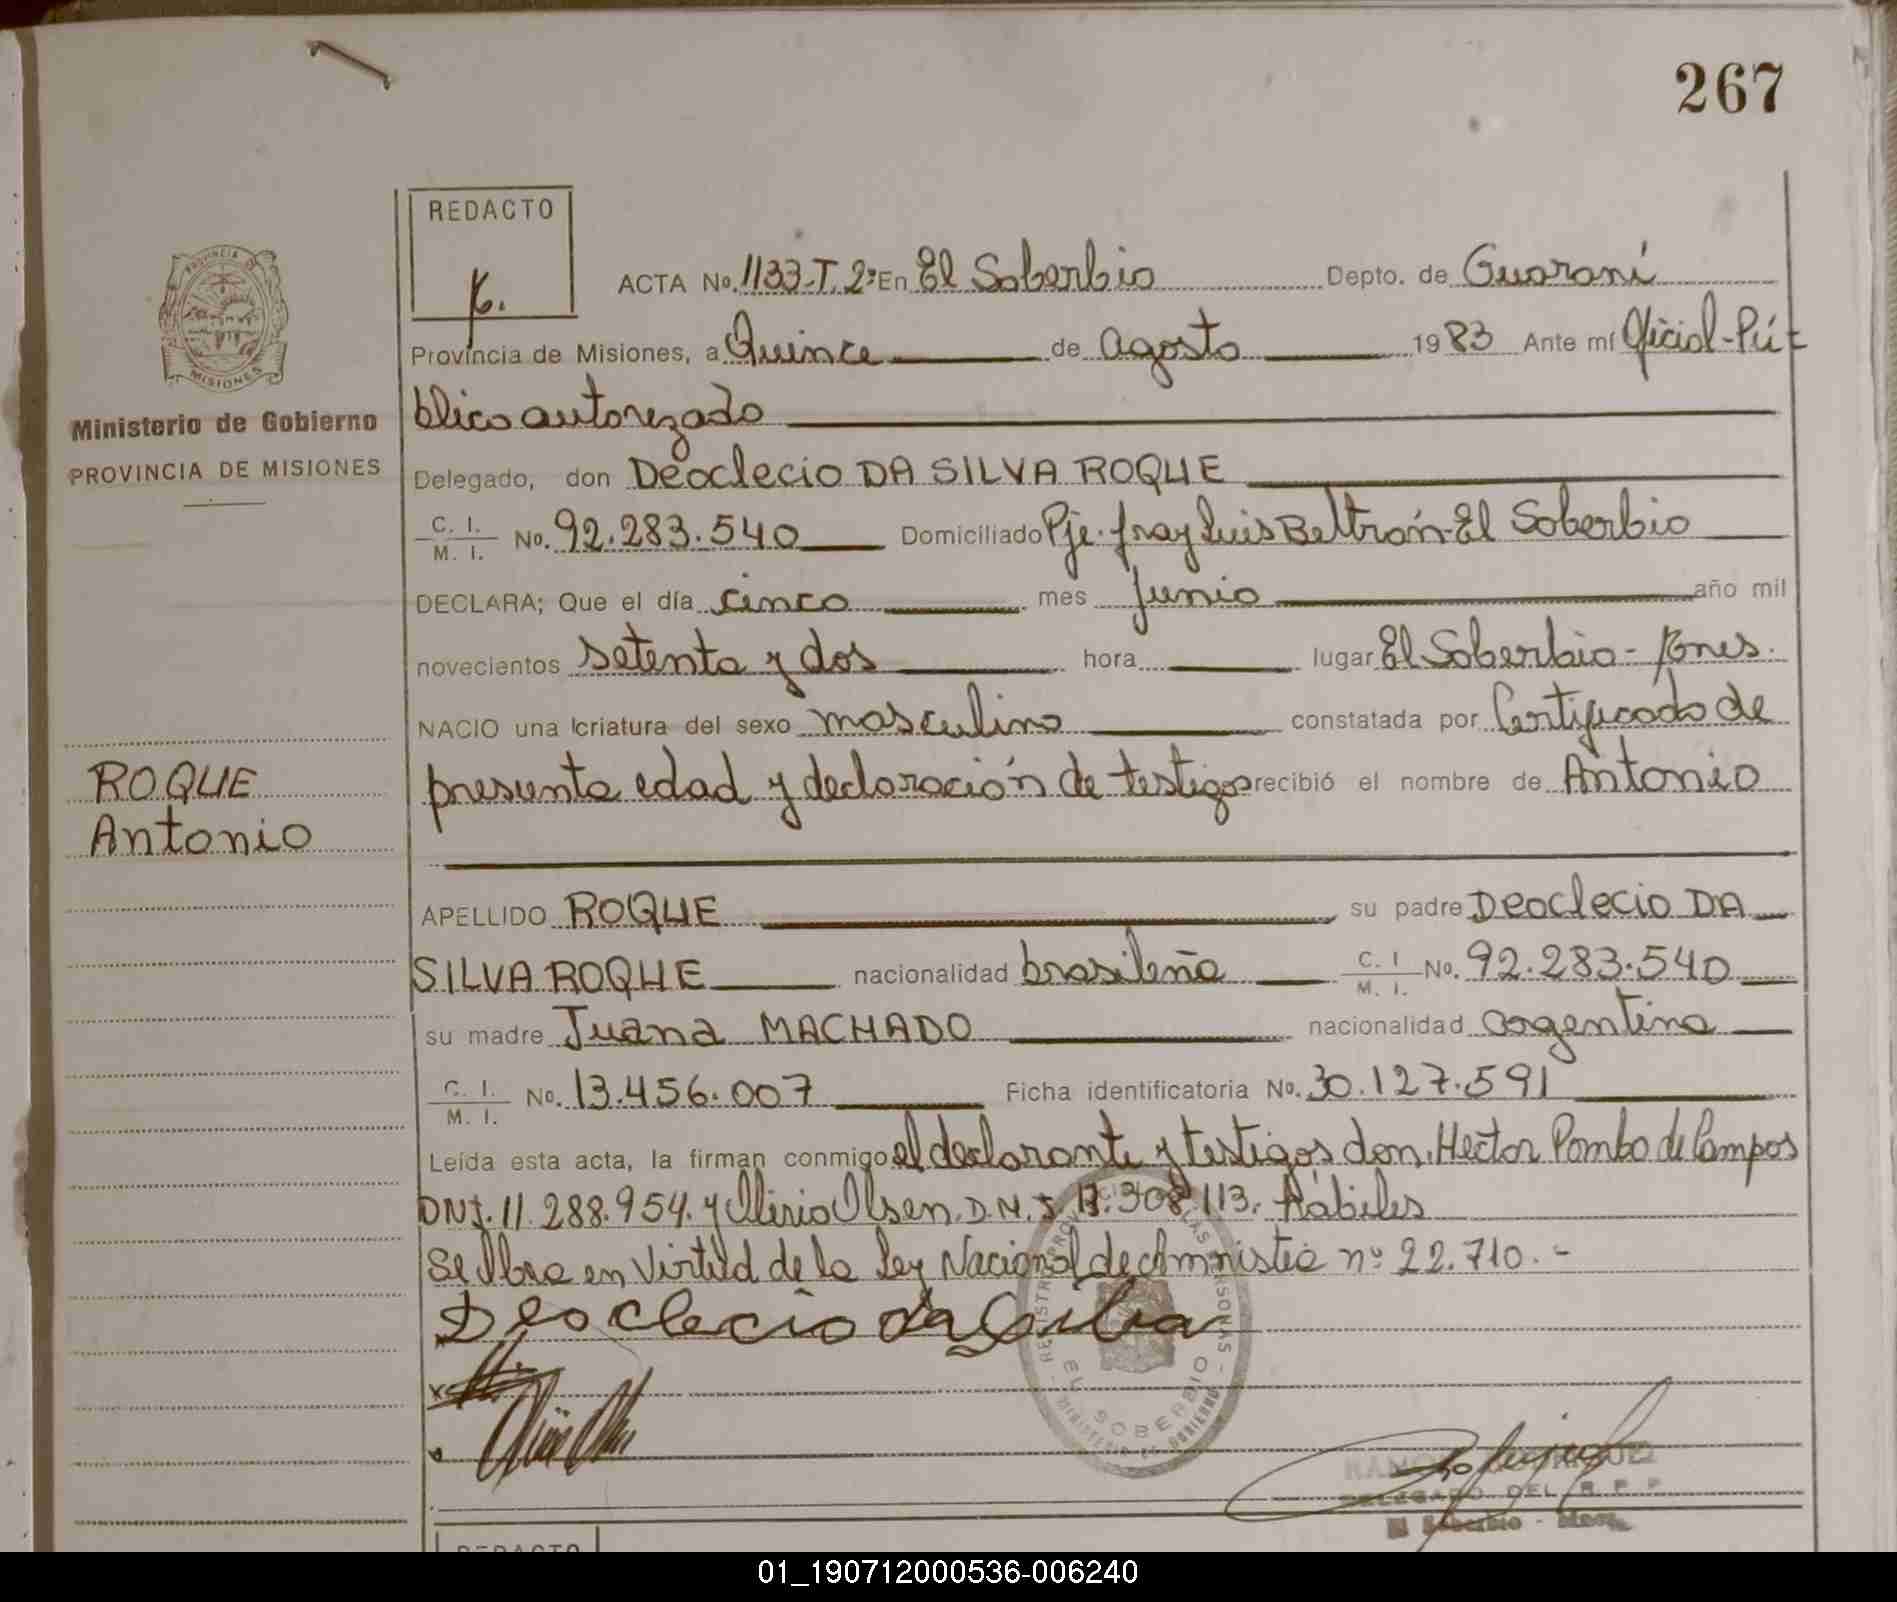 267
REDACTO
PROVINCIA DE
MISIONES
Ministerio de Gobierno
PROVINCIA DE MISIONES
ACTA No. 1133-T. 2º En El Soberbio Depto. de Guaraní
Provincia de Misiones, a Quince de agosto 1983 Ante mí Oficial-Pú-
blico autorizado
Delegado, don Deoclecio DA SILVA ROQUE
C. I. M. I. No. 92.283.540 Domiciliado Pje. fray Luis Beltrán-El Soberbio
DECLARA; Que el día cinco mes junio año mil
novecientos setenta y dos hora lugar El Soberbio-
NACIO una criatura del sexo masculino constatada por Certificado de
presunta edad y declaración de testigos recibió el nombre de Antonio
ROQUE
Antonio
APELLIDO ROQUE su padre Deoclecio DA
SILVA ROQUE nacionalidad brasileña C. I M. I. No. 92.283.540
su madre Juana MACHADO nacionalidad argentina
C. I. M. I. No. 13.456.007 Ficha identificatoria No. 30.127.591
Leída esta acta, la firman conmigo el declarante y testigos don. Hector Pombo de Campos
DNI. 11.288.954. y Olirio Olsen. D.N.I. 13.308.113. Hábiles
Se labra en Virtud de la Ley Nacional de Amnistia nº 22.710.-
Deoclecio da Silva
EL SOBERBIO
MINISTERIO DE GOBIERNO
DELEGADO DEL R P P
El Soberbio - Mnes.
REDACTO
01_190712000536-006240